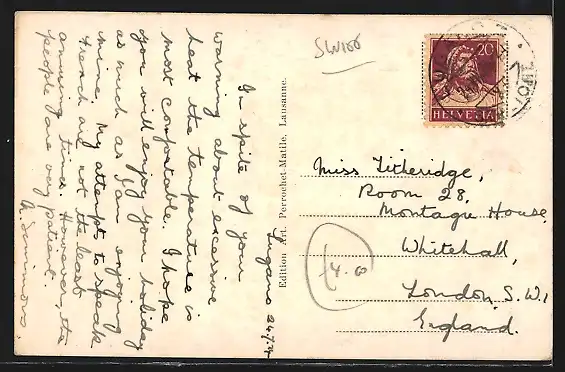 Lugano 24/7/
In spite of your
warning about excessive
heat the temperature is
most comfortable. I hope
you will enjoy your holiday
as much as I am enjoying
mine. My attempts to speak
French are not the least
amusing times. However, the
people are very patient.
Simmons.
Edition Art. Perrochet-Matile, Lausanne.
SW100
20
HELVETIA
Miss Titheridge,
Room 28,
Montagu House
Whitehall,
London, S.W.1
England.